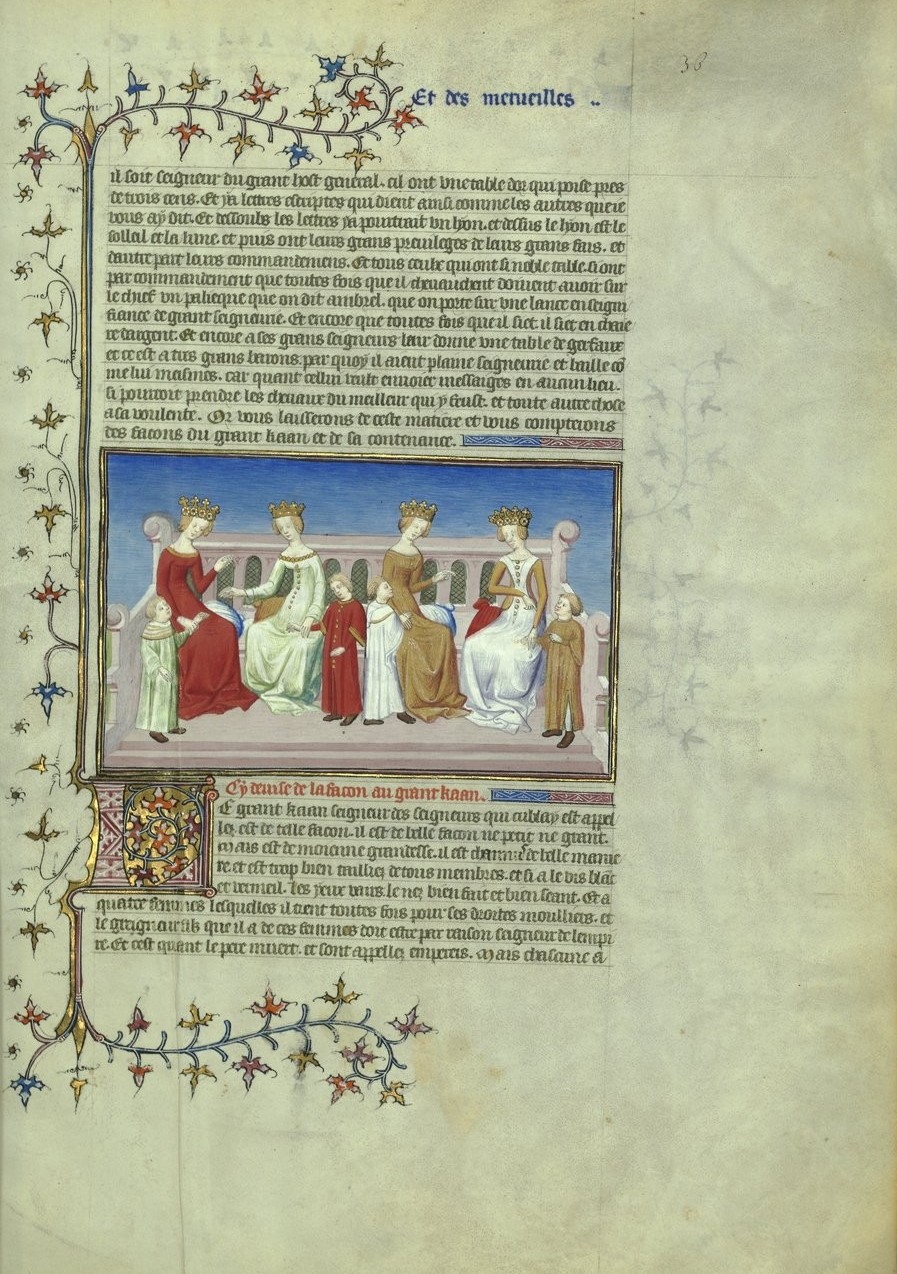 36
Et des merueilles ..
il soit seigneur du grant host general. cil ont vne table dor qui poise pres
de trois cens. Et ya lettres escriptes qui dient ainsi comme les autres que ie
vous ay dit. Et dessoubs les lettres ya pourtrait vn lyon. et dessus le lyon est le
solleil et la lune. et puis ont leurs grans preuileges de leurs grans fais. et
dautre part leurs commandemens. Et tous ceulx qui ont si noble table. si ont
par commandement que toutes fois que il cheuauchent doiuent auoir sur
le chief vn palieque que on dit ambrel. que on porte sur vne lance en seigni
fiance de grant seigneurie. Et encore que toutes fois que il siet. il siet en chaie
re dargent. Et encore a ses grans seigneurs leur donne vne table de gerfaux
et ce est a tres grans barons. par quoy il aient plaine seigneurie et baille cõ
me lui meismes. car quant cellui veult enuoier messaiges en aucun lieu.
si pourroit prendre les cheuaux du meilleur qui y feust. et toute autre chose
a sa voulente. Or vous laisserons de ceste matiere et vous compterons
des facons du grant kaan et de sa contenance.
Cy deuise de la facon au grant kaan.
Le grant kaan seigneur des seigneurs qui cublay est appel
lez est de telle facon. il est de belle facon ne petit ne grant.
Mais est de moienne grandesse. il est charnu de belle manie
re. et est trop bien tailliez de tous membres. et si a le vis blãc
et vermeil. les yeux vairs. le nez bien fait et bien seant. Et a
quatre femmes lesquelles il tient toutes fois pour ses droites moulliers. et
le greigneur filz que il a de ces femmes doit estre par raison seigneur de lempi
re. Et cest quant le pere muert. et sont appellez empereis. Mais chascune a